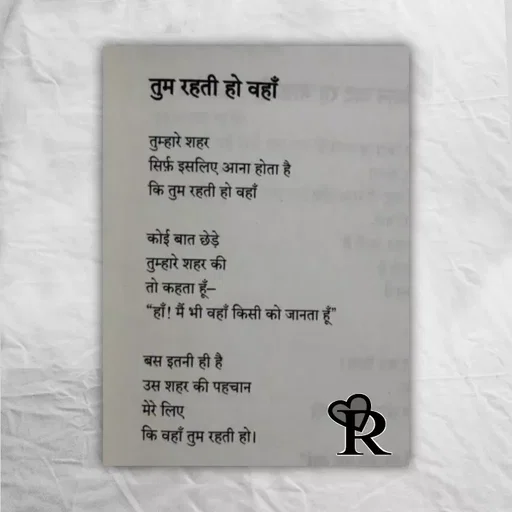 तुम रहती हो वहाँ
तुम्हारे शहर
सिर्फ़ इसलिए आना होता है
कि तुम रहती हो वहाँ
कोई बात छेड़े
तुम्हारे शहर की
तो कहता हूँ–
“हाँ! मैं भी वहाँ किसी को जानता हूँ”
बस इतनी ही है
उस शहर की पहचान
मेरे लिए
कि वहाँ तुम रहती हो।
R